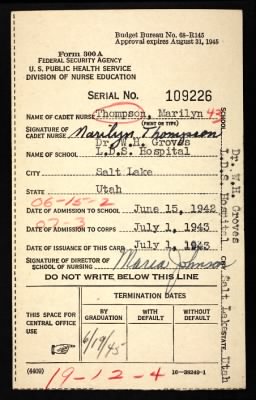 Budget Bureau No. 68-R145
Approval expires August 31, 1945
Form 300A
FEDERAL SECURITY AGENCY
U. S. PUBLIC HEALTH SERVICE
DIVISION OF NURSE EDUCATION
SERIAL No. 109226
NAME OF CADET NURSE Thompson, Marilyn 43
(PRINT OR TYPE)
SIGNATURE OF
CADET NURSE Marilyn Thompson
Dr. W.H. Groves
NAME OF SCHOOL L.D.S. Hospital
CITY Salt Lake
STATE Utah
06-15-2
DATE OF ADMISSION TO SCHOOL June 15, 1942
07-3
DATE OF ADMISSION TO CORPS July 1, 1943
DATE OF ISSUANCE OF THIS CARD July 1, 1943
SIGNATURE OF DIRECTOR
OF SCHOOL OF NURSING Maria Johnson
DO NOT WRITE BELOW THIS LINE
TERMINATION DATES
THIS SPACE FOR
CENTRAL OFFICE
USE
BY
GRADUATION
WITH
DEFAULT
WITHOUT
DEFAULT
6/19/45
(4409)
16-38249-1
19-12-4
Dr. W.H. Groves
L.D.S. Hospital Salt Lake STATE Utah